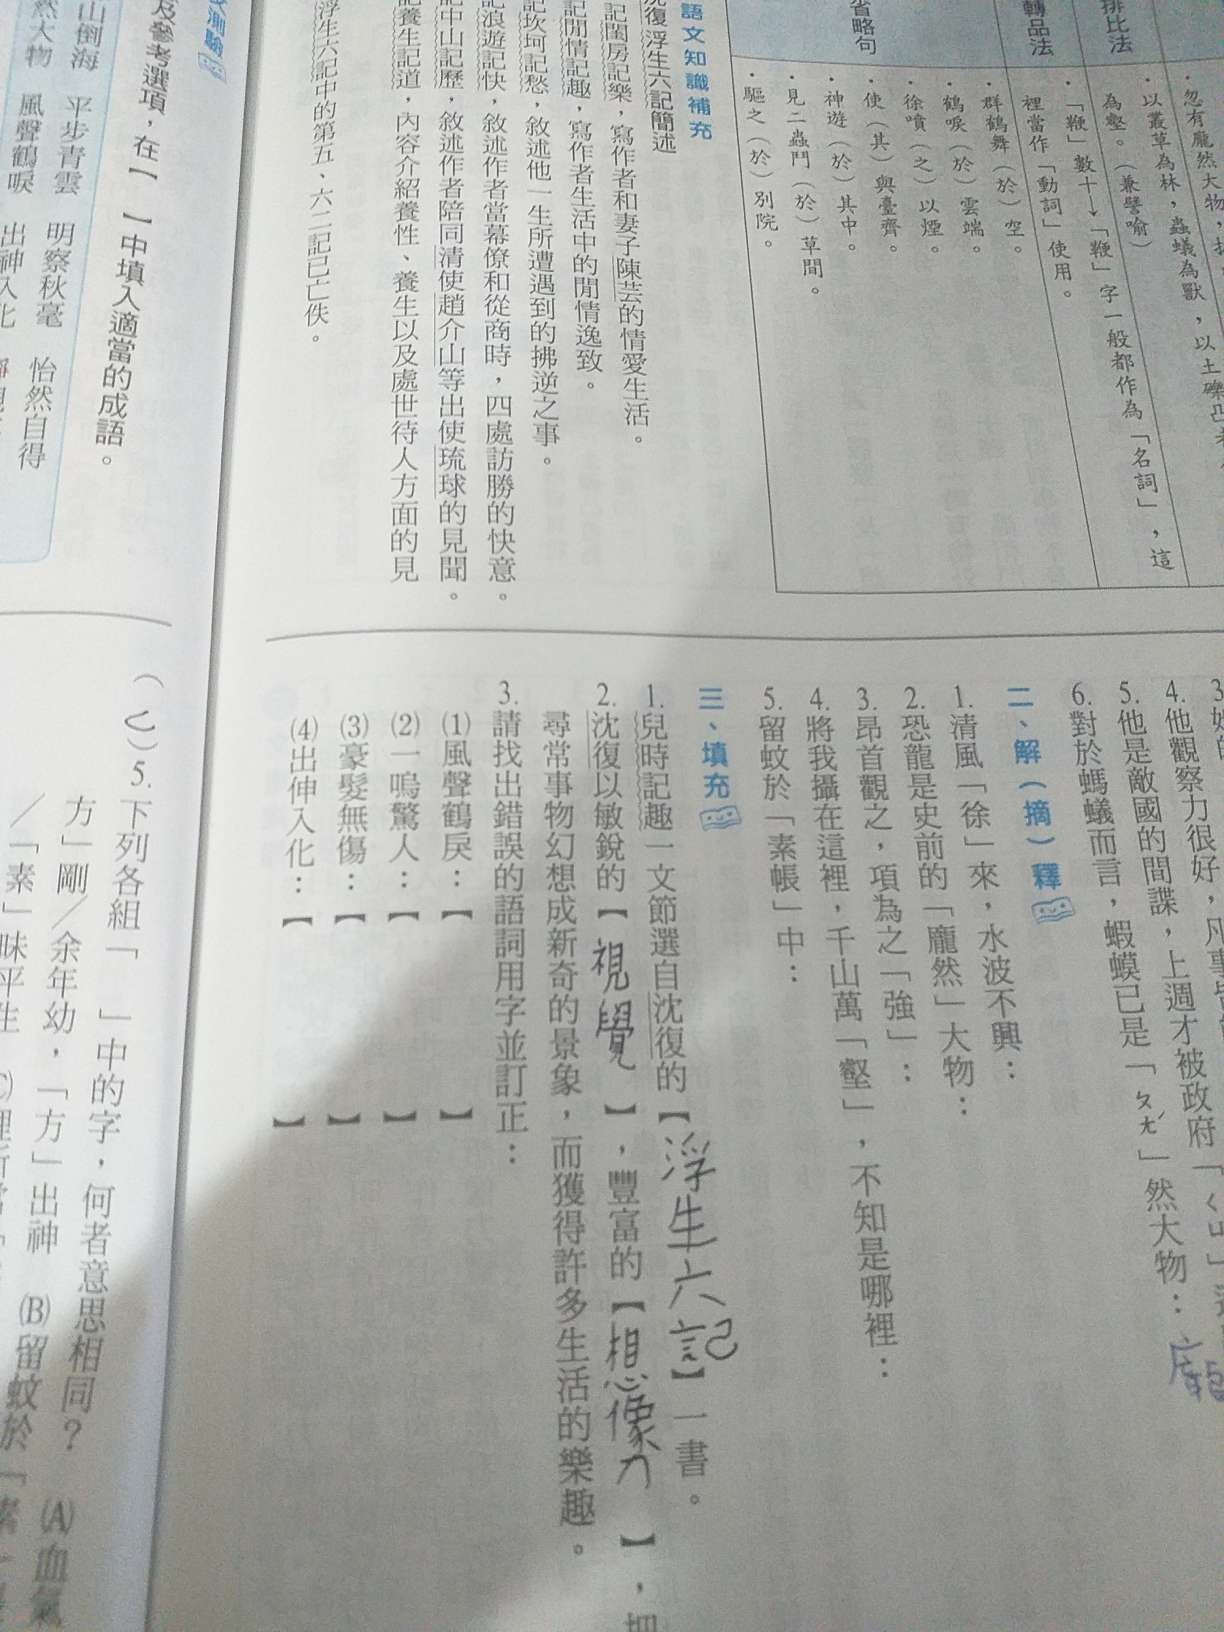 排比法
・忽有龐然大物，
以叢草為林，蟲蟻為獸，以土礫凸者
為壑。（兼譬喻）
轉品法
・「鞭」數十→「鞭」字一般都作為「名詞」，這
裡當作「動詞」使用。
省略句
・群鶴舞（於）空。
・鶴唳（於）雲端。
・徐噴（之）以煙。
・使（其）與臺齊。
・神遊（於）其中。
・見二蟲鬥（於）草間。
・驅之（於）別院。
語文知識補充
沈復浮生六記簡述
記閨房記樂，寫作者和妻子陳芸的情愛生活。
記閒情記趣，寫作者生活中的閒情逸致。
記坎坷記愁，敘述他一生所遭遇到的拂逆之事。
記浪遊記快，敘述作者當幕僚和從商時，四處訪勝的快意。
記中山記歷，敘述作者陪同清使趙介山等出使琉球的見聞。
記養生記道，內容介紹養性、養生以及處世待人方面的見
浮生六記中的第五、六二記已亡佚。
4.他觀察力很好，凡事
5.他是敵國的間諜，上週才被政府「ㄑㄩ
6.對於螞蟻而言，蝦蟆已是「ㄆㄤˊ」然大物：龐
二、解（摘）釋
1.清風「徐」來，水波不興：
2.恐龍是史前的「龐然」大物：
3.昂首觀之，項為之「強」：
4.將我攝在這裡，千山萬「壑」，不知是哪裡：
5.留蚊於「素帳」中：
三、填充
1.兒時記趣一文節選自沈復的【浮生六記】一書。
2.沈復以敏銳的【視覺】，豐富的【想像力】，把
尋常事物幻想成新奇的景象，而獲得許多生活的樂趣。
3.請找出錯誤的語詞用字並訂正：
⑴風聲鶴戾：【 】
⑵一鳴驚人：【 】
⑶豪髮無傷：【 】
⑷出伸入化：【 】
測驗
參考選項，在【 】中填入適當的成語。
山倒海 平步青雲 明察秋毫 怡然自得
然大物 風聲鶴唳 出神入化
（C）5.下列各組「 」中的字，何者意思相同？ (A)血氣
方」剛／余年幼，「方」出神 (B)留蚊於「素
／「素」昧平生